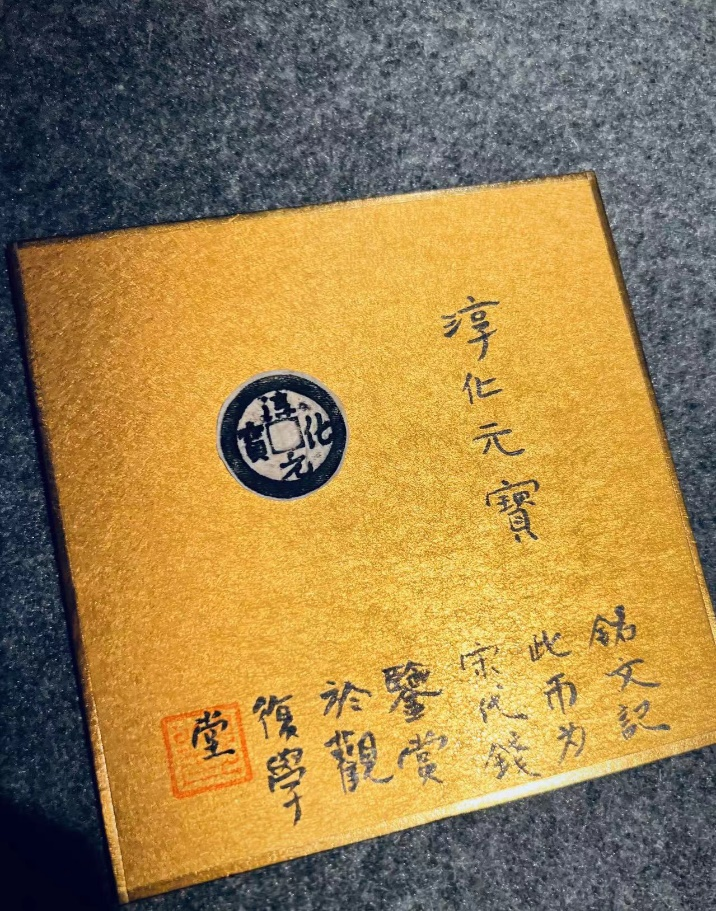 淳化元寶
淳化元寶
銘文記
此币为
宋代錢
鑒賞
於觀
復學
堂